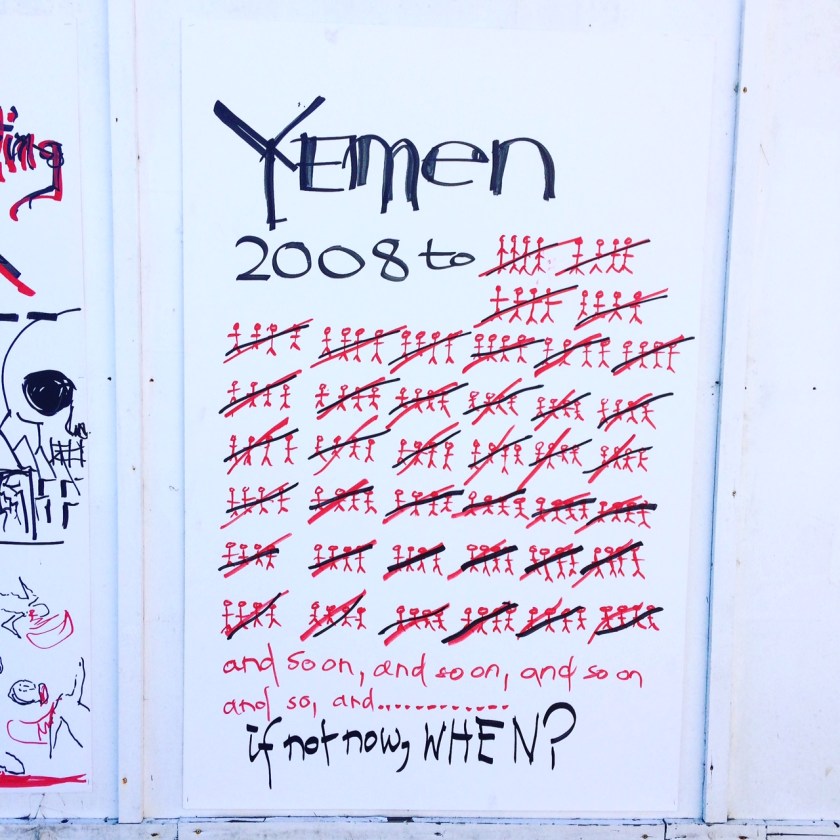 Yemen
2008 to
and so on, and so on, and so on
and so, and............
if not now, WHEN?